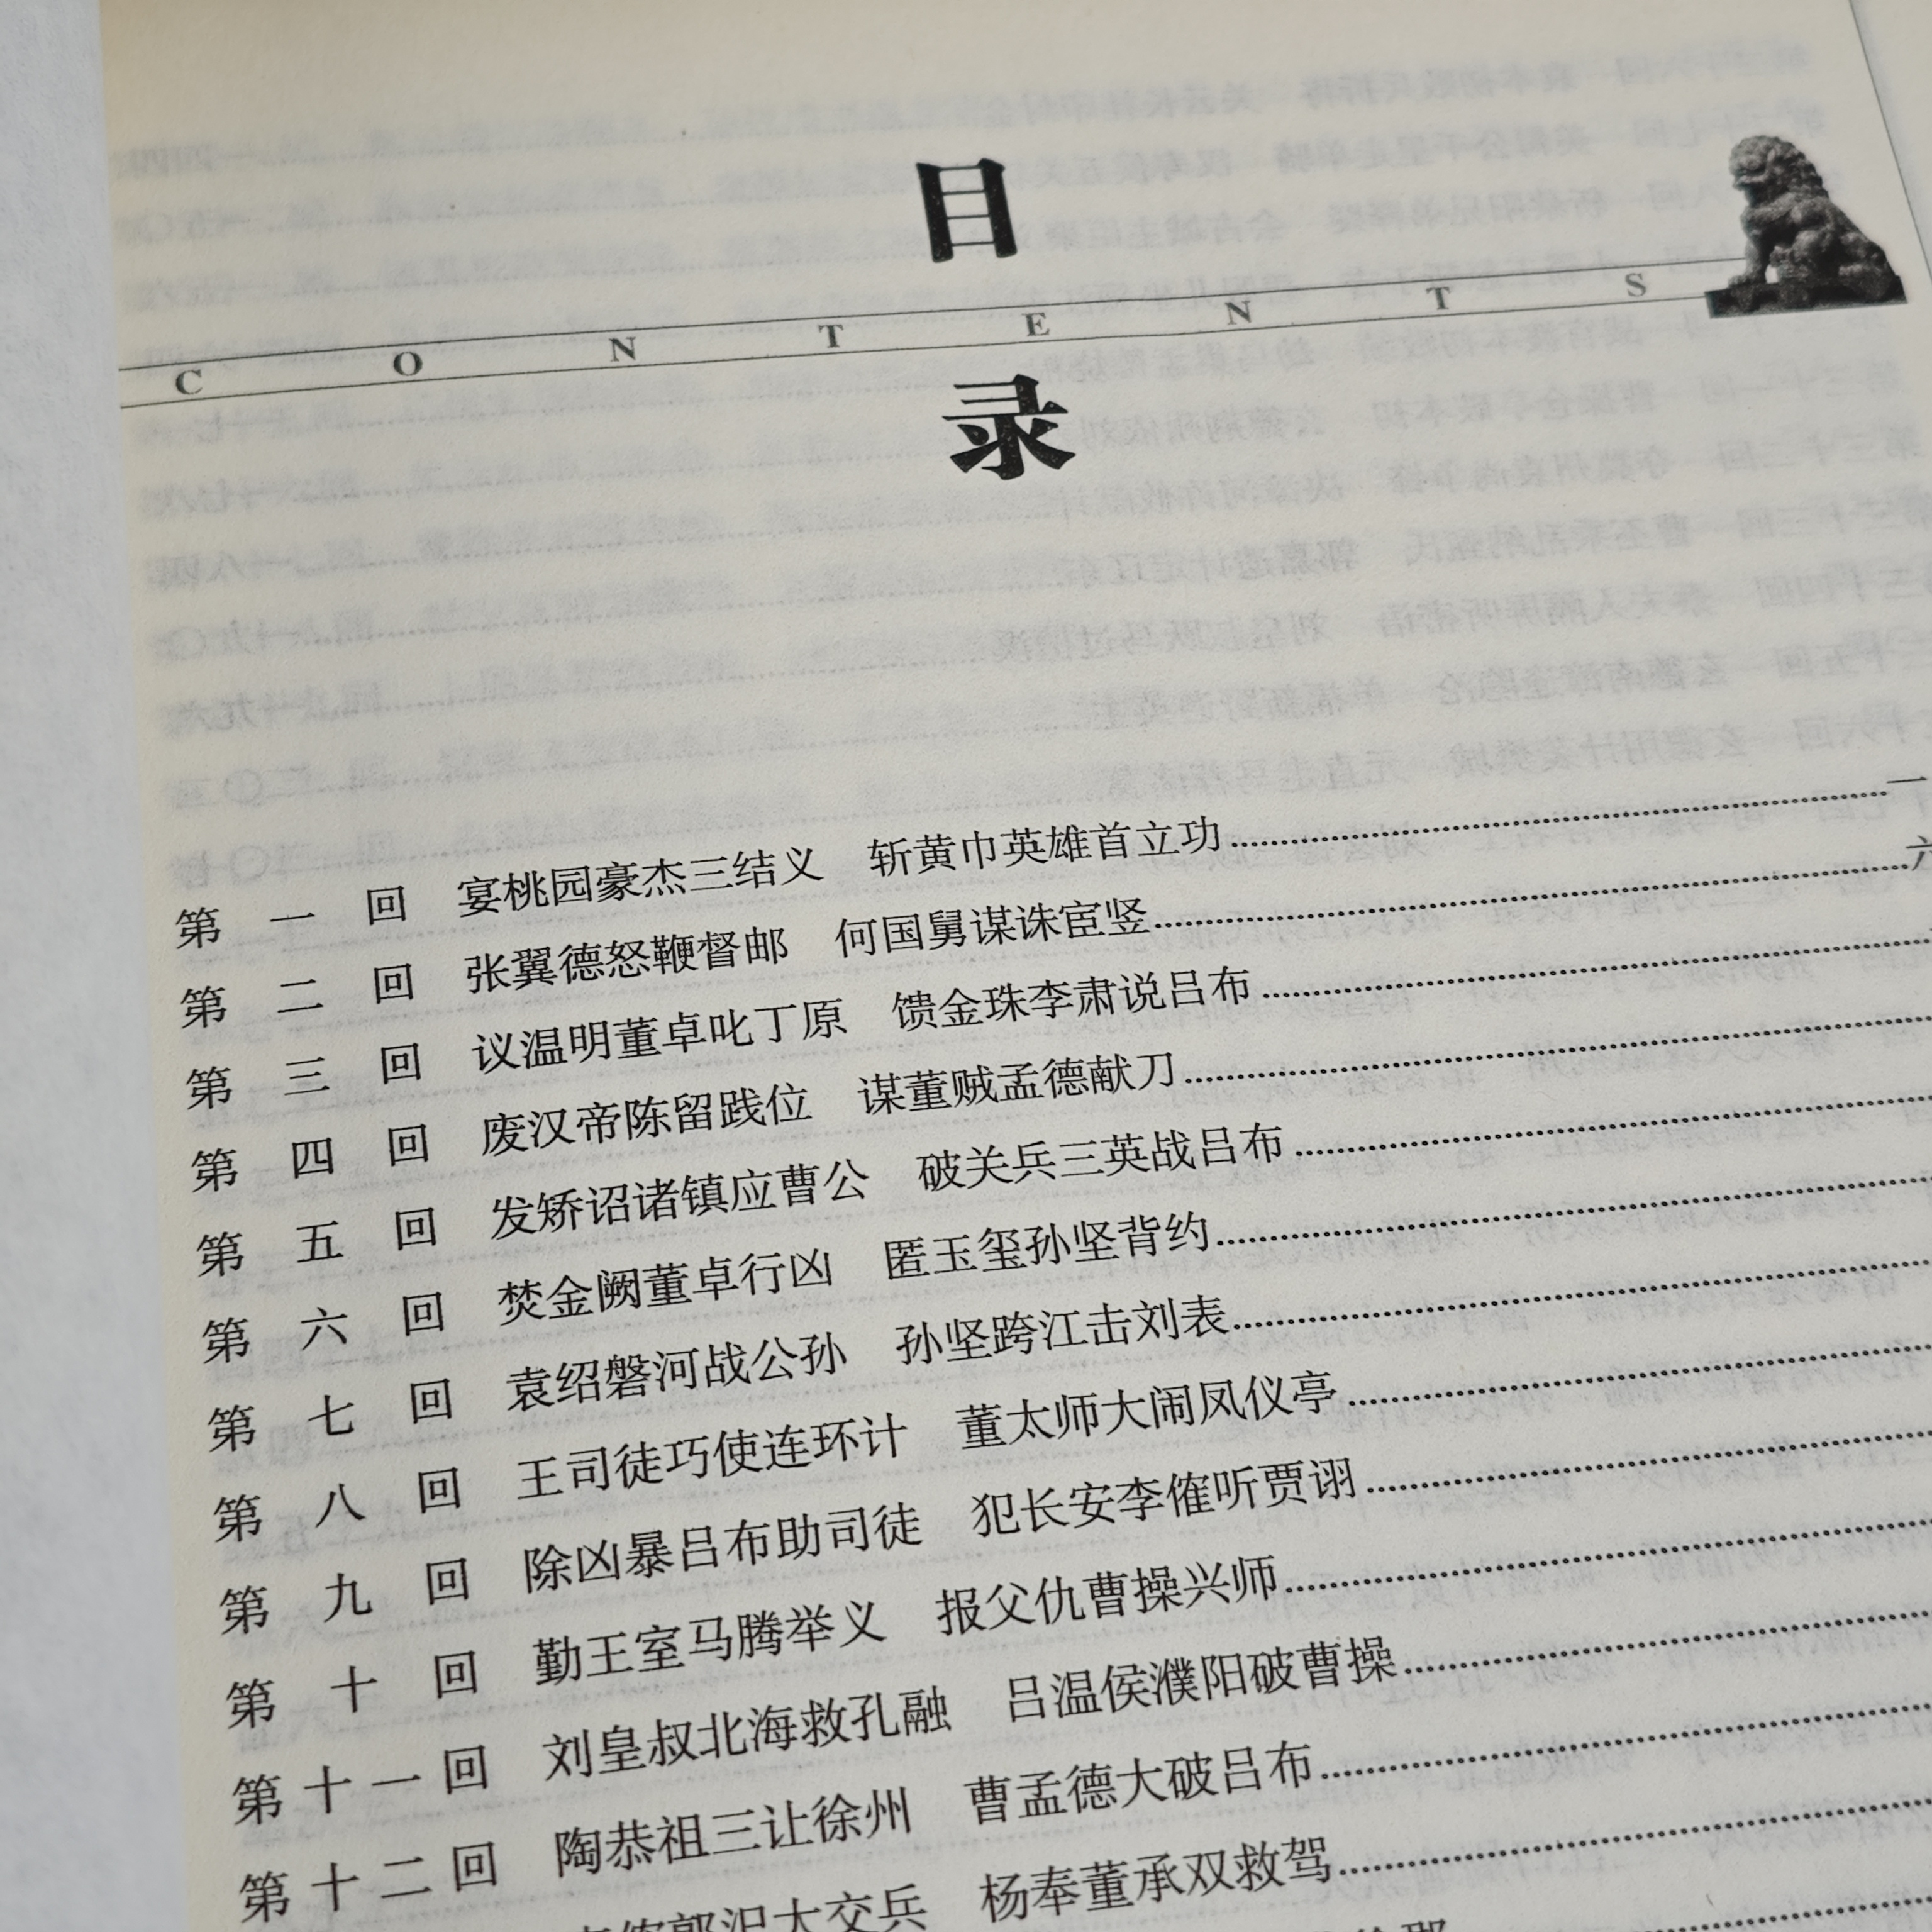 目
CONTENTS
录
第一回 宴桃园豪杰三结义 斩黄巾英雄首立功……一
第二回 张翼德怒鞭督邮 何国舅谋诛宦竖……六
第三回 议温明董卓叱丁原 馈金珠李肃说吕布……
第四回 废汉帝陈留践位 谋董贼孟德献刀……
第五回 发矫诏诸镇应曹公 破关兵三英战吕布……
第六回 焚金阙董卓行凶 匿玉玺孙坚背约……
第七回 袁绍磐河战公孙 孙坚跨江击刘表……
第八回 王司徒巧使连环计 董太师大闹凤仪亭……
第九回 除凶暴吕布助司徒 犯长安李傕听贾诩……
第十回 勤王室马腾举义 报父仇曹操兴师……
第十一回 刘皇叔北海救孔融 吕温侯濮阳破曹操……
第十二回 陶恭祖三让徐州 曹孟德大破吕布……
郭汜大交兵 杨奉董承双救驾……